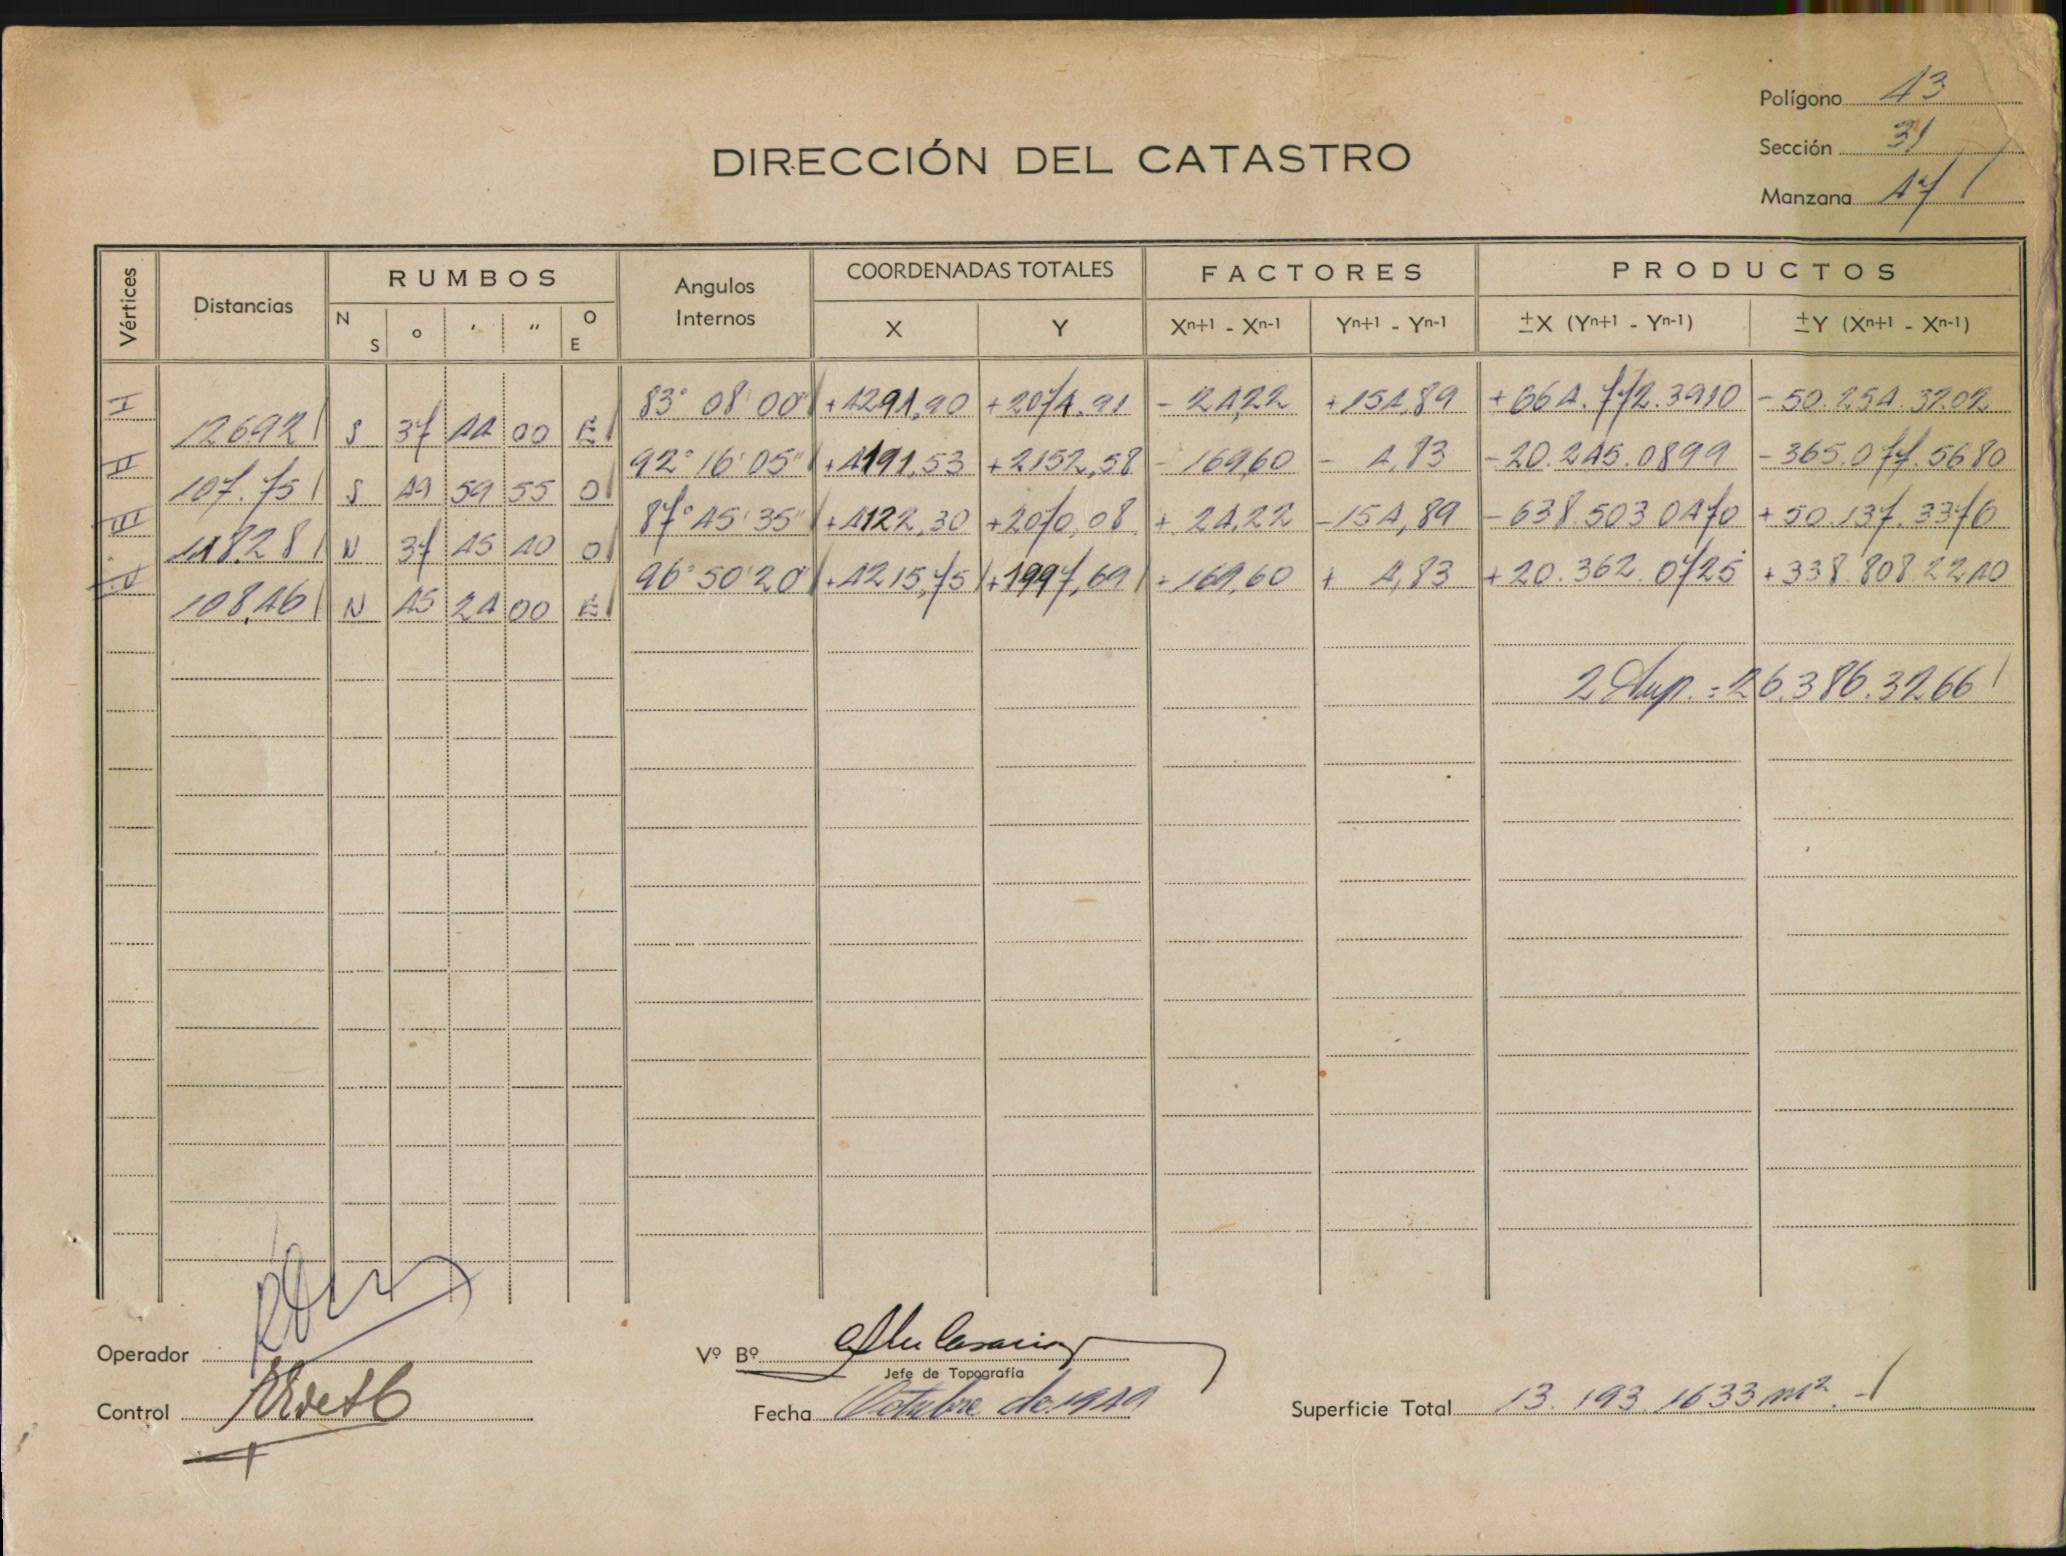 Polígono 43
Sección 31
Manzana 47
DIRECCIÓN DEL CATASTRO
Vértices Distancias RUMBOS Angulos Internos COORDENADAS TOTALES FACTORES PRODUCTOS
N S ° ' " O E X Y Xn+1 - Xn-1 Yn+1 - Yn-1 ±X (Yn+1 - Yn-1) ±Y (Xn+1 - Xn-1)
I 83° 08' 00" +4291,90 +2074.91 - 24,22 +154,89 +664.772.3910 - 50.254.3202
126.92 S 37 44 00 E
II 92° 16' 05" +4191,53 +2152,58 - 169,60 - 4,83 -20.245.0899 - 365.077.5680
107.75 S 49 59 55 O
III 87° 45' 35" +4122,30 +2070,08 + 24,22 -154,89 -638.503.0470 + 50.137.3376
118.28 N 37 45 40 O
IV 96° 50' 20" +4215,75 +1997,69 +169,60 + 4,83 +20.362.0725 +338.808.2240
108,46 N 45 24 00 E
2 Sup. = 26.386.3266
Operador
Vº Bº
Jefe de Topografía
Control
Fecha Octubre de 1949
Superficie Total 13.193.1633 m² -